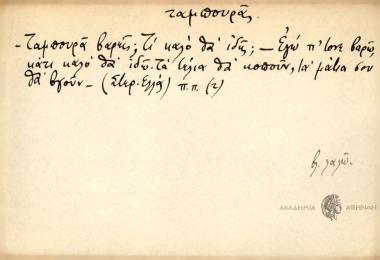 ταμπουρᾶς.
- Ταμπουρᾶ βαρεῖς; Τί καλό θά ἰδῇς; — Ἐγώ π' τονε βαρῶ,
κάτι καλό θά ἰδῶ. Τά τέλια θά κοποῦν, τά μάτια σου
θά βγοῦν — (Στερ. Ελλά) π.π. (2)
βλ. λαλῶ.
ΑΚΑΔΗΜΙΑ ΑΘΗΝΩΝ